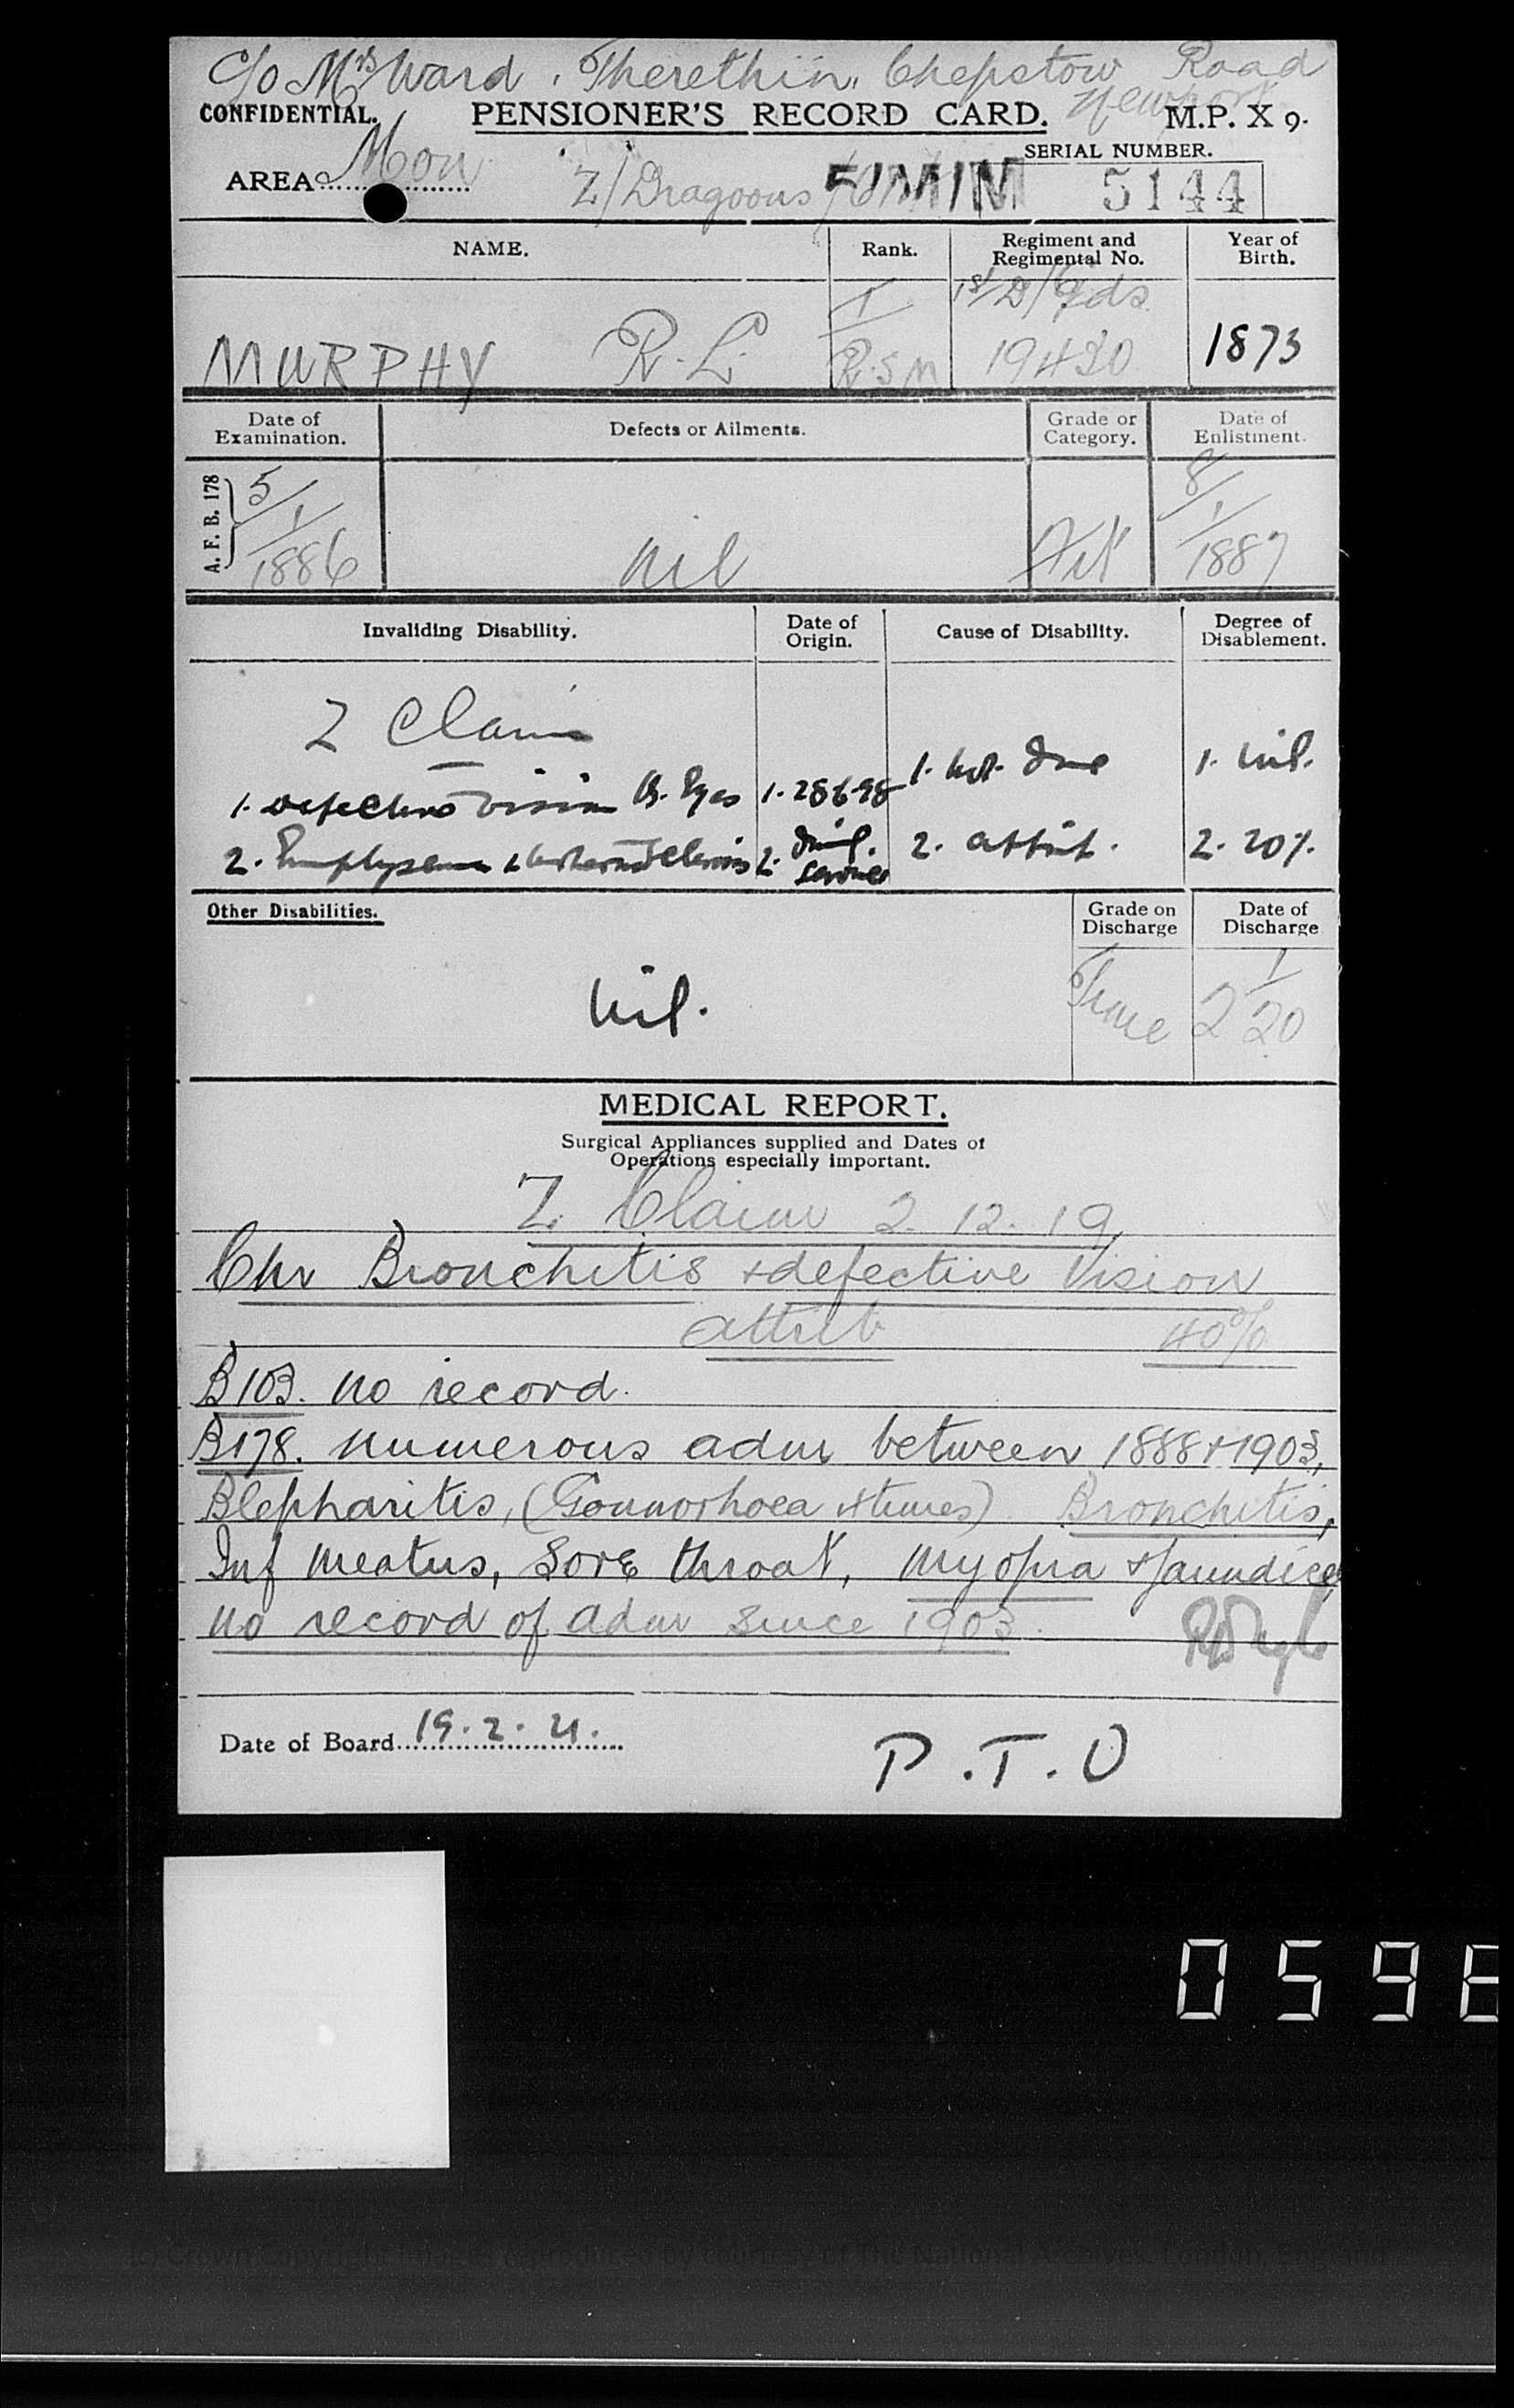 C/o Mrs Ward, Therethin, Chepstow Road
Newport
CONFIDENTIAL. PENSIONER'S RECORD CARD. M.P. X 9.
SERIAL NUMBER.
AREA Mon Z/Dragoons 5/M/M 5144
NAME. Rank. Regiment and Regimental No. Year of Birth.
1st D/Gds
MURPHY R. L. R.S.M 19420 1873
Date of Examination. Defects or Ailments. Grade or Category. Date of Enlistment.
A. F. B. 178 5/1/1886 nil Fit 8/1/1887
Invaliding Disability. Date of Origin. Cause of Disability. Degree of Disablement.
Z Claim
1. Defective Vision B. Eyes 1. 1. Not due 1. nil.
2. Emphysema & 2. during service 2. attrib. 2. 20%.
Other Disabilities. Grade on Discharge Date of Discharge
nil. 2 1/20
MEDICAL REPORT.
Surgical Appliances supplied and Dates of
Operations especially important.
Z Claim 2.12.19
Chr Bronchitis + defective Vision
attrib 40%
B103. No record.
B178. Numerous adm between 1888 + 1903,
Blepharitis, (Gonnorhoea 4 times) Bronchitis,
Inf meatus, Sore throat, Myopia + Jaundice
No record of adm since 1903.
Date of Board 19.2.21.
P.T.O
059
(c) Crown Copyright Images reproduced by courtesy of The National Archives, London, England